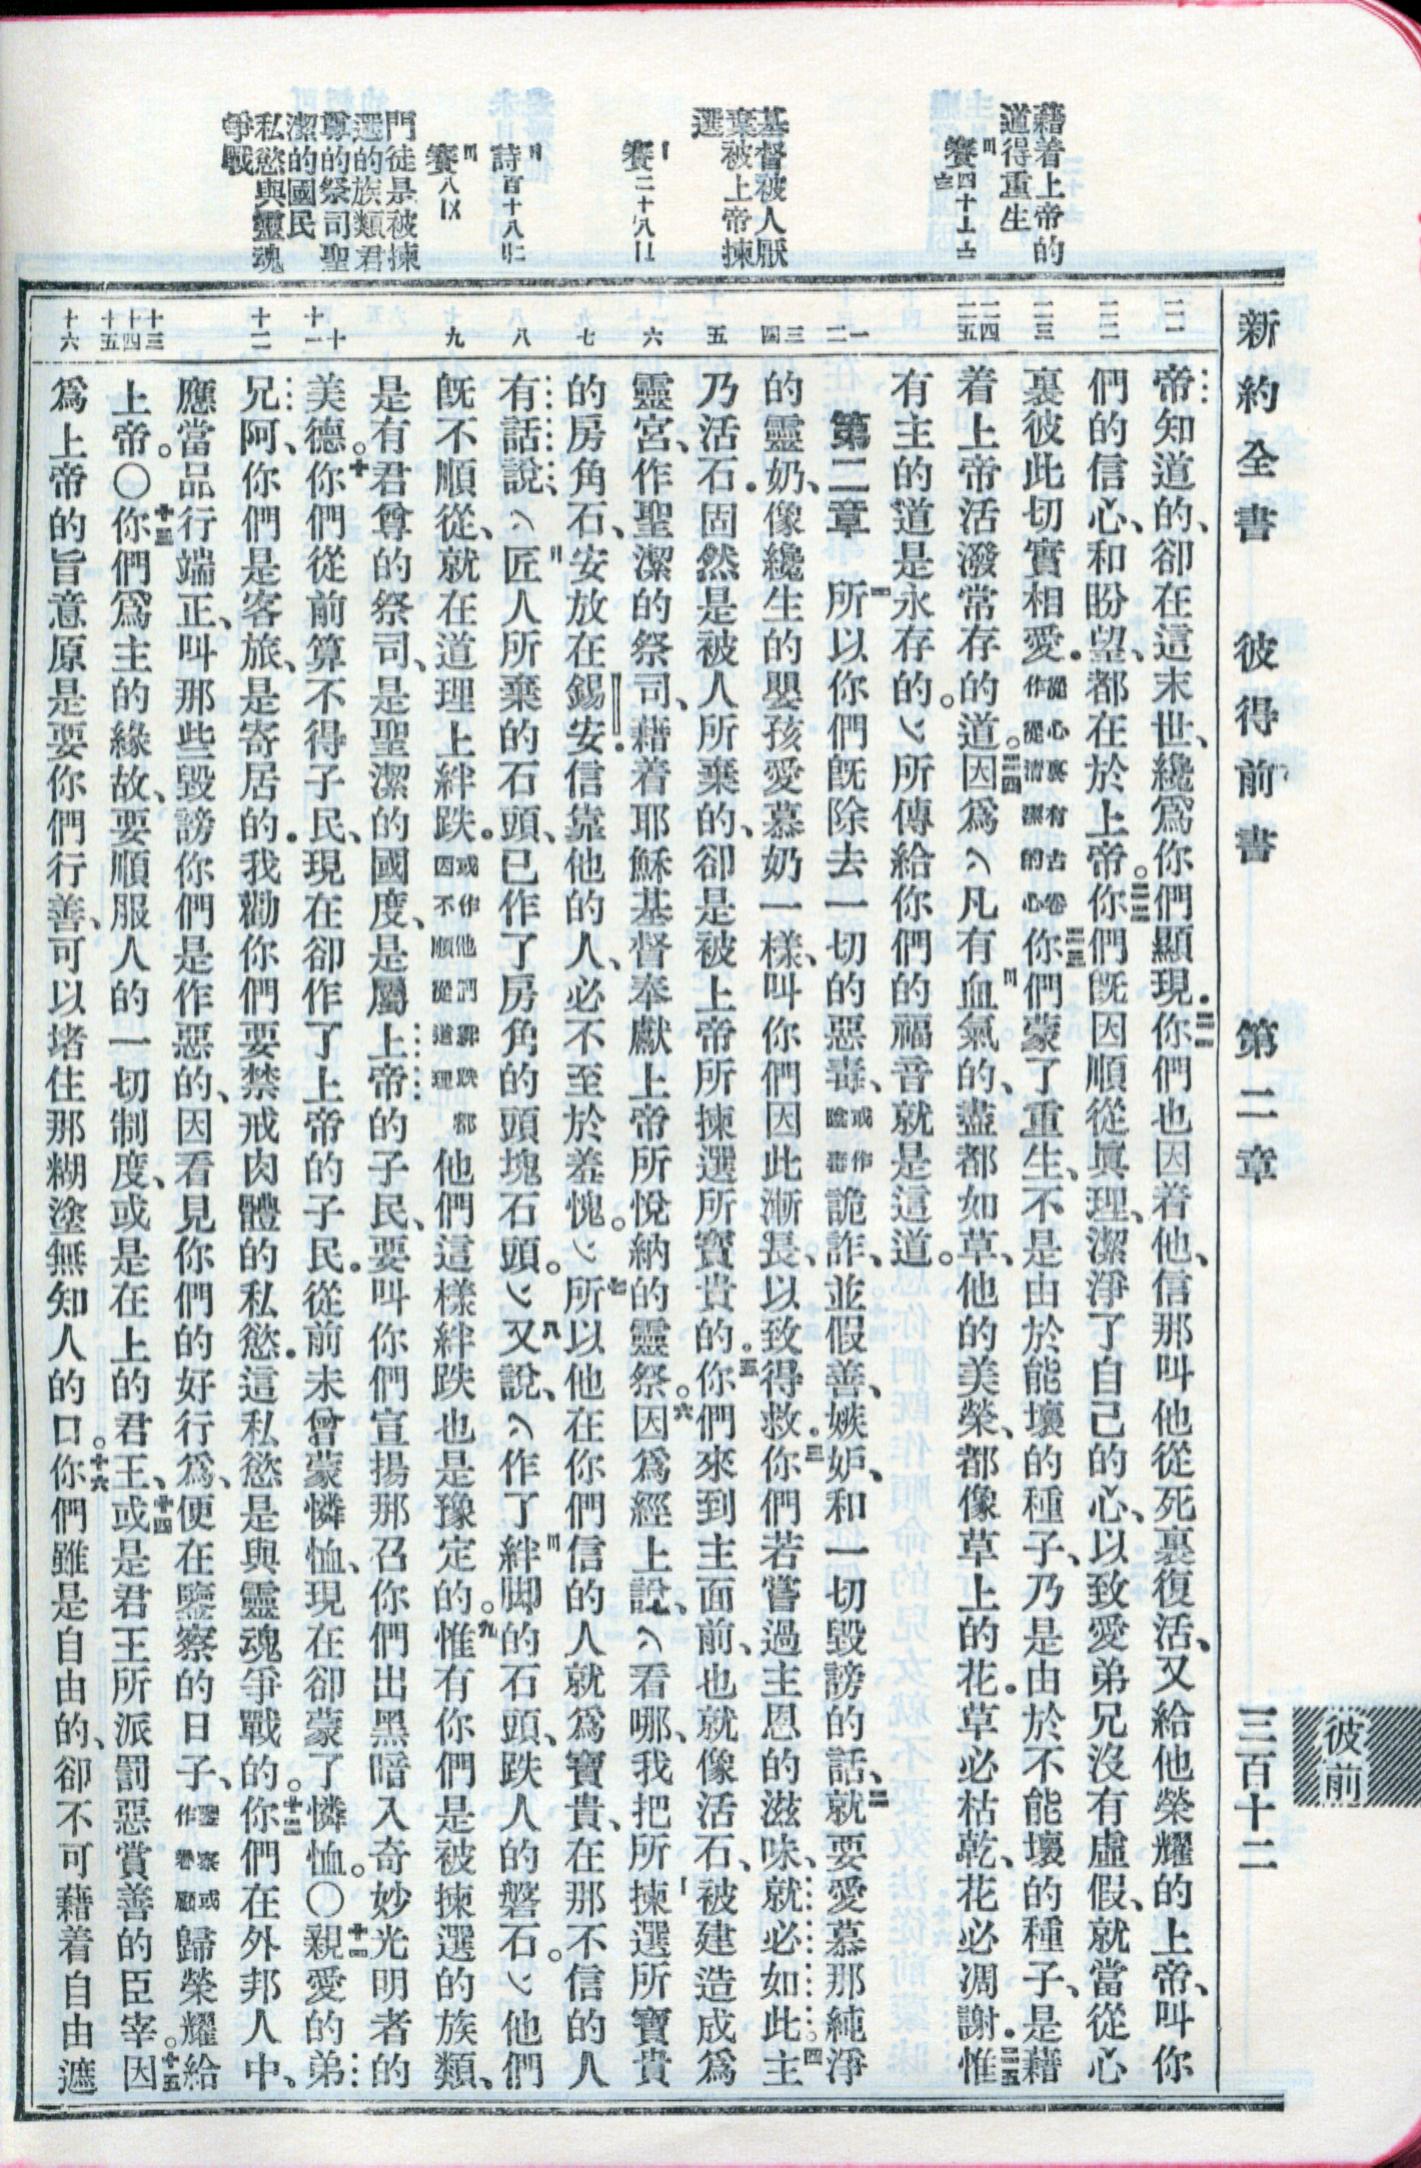 新約全書 彼得前書 第二章 三百十二
彼前
藉着上帝的
道得重生
基督被人厭
棄被上帝揀
選
門徒是被揀
選的族類君
尊的祭司聖
潔的國民
私慾與靈魂
爭戰
帝知道的、卻在這末世、纔爲你們顯現．二一你們也因着他、信那叫他從死裏復活、又給他榮耀的上帝、叫你
們的信心、和盼望、都在於上帝。二二你們既因順從眞理、潔淨了自己的心、以致愛弟兄沒有虛假、就當從心
裏彼此切實相愛．從心裏有古卷作從清潔的心二三你們蒙了重生、不是由於能壞的種子、乃是由於不能壞的種子、是藉
着上帝活潑常存的道。二四因爲凡有血氣的、盡都如草、他的美榮、都像草上的花．草必枯乾、花必凋謝．二五惟
有主的道是永存的。所傳給你們的福音就是這道。
第二章 一所以你們既除去一切的惡毒、或作陰毒詭詐、並假善、嫉妒、和一切毀謗的話、二就要愛慕那純淨
的靈奶、像纔生的嬰孩愛慕奶一樣、叫你們因此漸長、以致得救．三你們若嘗過主恩的滋味、就必如此。四主
乃活石．固然是被人所棄的、卻是被上帝所揀選所寶貴的。五你們來到主面前、也就像活石、被建造成爲
靈宮、作聖潔的祭司、藉着耶穌基督奉獻上帝所悅納的靈祭。六因爲經上說、看哪、我把所揀選所寶貴
的房角石、安放在錫安．信靠他的人、必不至於羞愧。七所以他在你們信的人就爲寶貴、在那不信的人
有話說、匠人所棄的石頭、已作了房角的頭塊石頭。八又說、作了絆脚的石頭、跌人的磐石。他們
旣不順從、就在道理上絆跌．或作他們絆跌都因不順從道理他們這樣絆跌也是豫定的。九惟有你們是被揀選的族類、
是有君尊的祭司、是聖潔的國度、是屬上帝的子民、要叫你們宣揚那召你們出黑暗入奇妙光明者的
美德。十你們從前算不得子民、現在卻作了上帝的子民．從前未曾蒙憐恤、現在卻蒙了憐恤。○十一親愛的弟
兄阿、你們是客旅、是寄居的．我勸你們要禁戒肉體的私慾．這私慾是與靈魂爭戰的。十二你們在外邦人中、
應當品行端正、叫那些毀謗你們是作惡的、因看見你們的好行爲、便在鑒察的日子、鑒察或作眷顧歸榮耀給
上帝。○十三你們爲主的緣故、要順服人的一切制度、或是在上的君王、十四或是君王所派罰惡賞善的臣宰。十五因
爲上帝的旨意原是要你們行善、可以堵住那糊塗無知人的口。十六你們雖是自由的、卻不可藉着自由遮